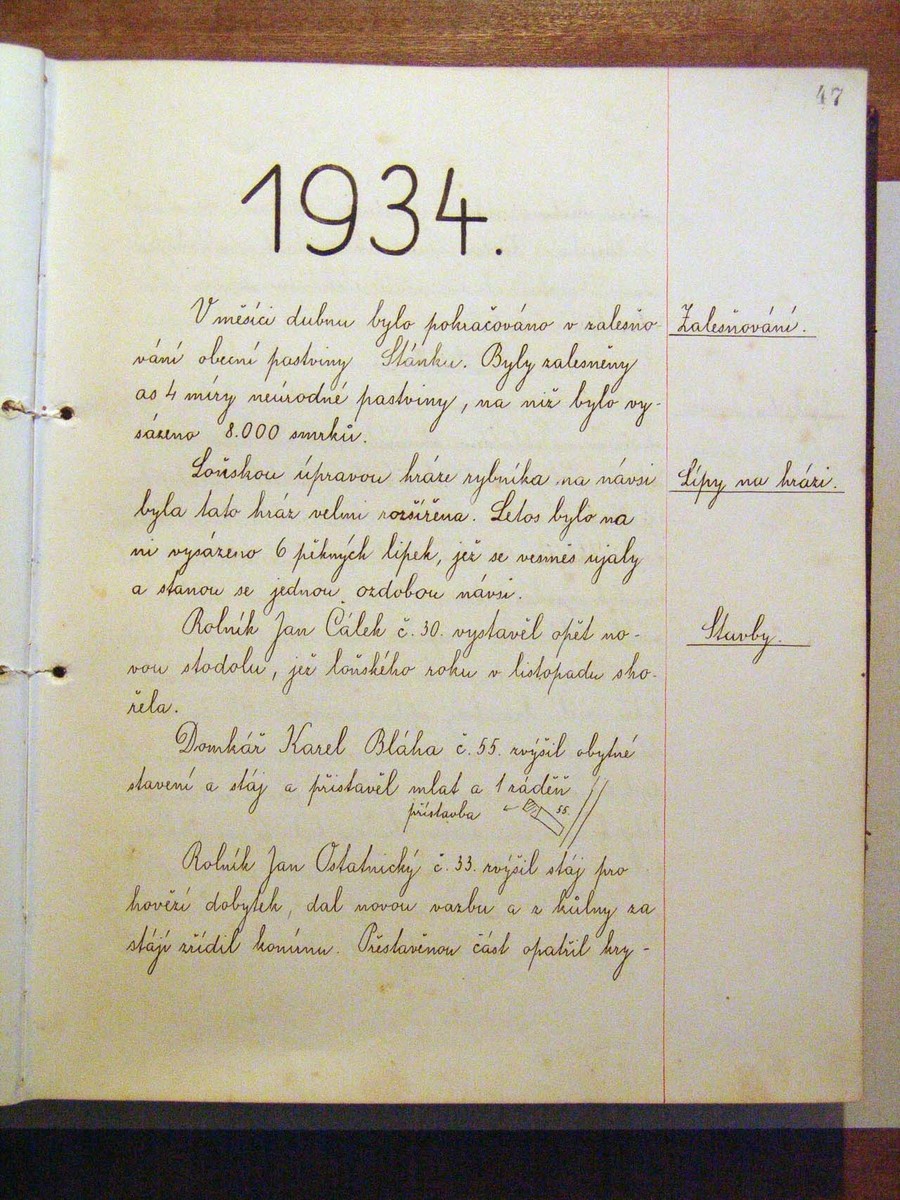 47
1934.
V měsíci dubnu bylo pokračováno v zalesňo-
Zalesňování.
vání obecní pastviny Stánku. Byly zalesněny
as 4 míry neúrodné pastviny, na niž bylo vy-
sázeno 8.000 smrků.
Loňskou úpravou hráze rybníka na návsi
Lípy na hrázi.
byla tato hráz velmi rozšířena. Letos bylo na
ni vysázeno 6 pěkných lipek, jež se vesměs ujaly
a stanou se jednou ozdobou návsi.
Rolník Jan Čálek č. 30. vystavěl opět no-
Stavby.
vou stodolu, jež loňského roku v listopadu sho-
řela.
Domkář Karel Bláha č. 55. zvýšil obytné
stavení a stáj a přistavěl mlat a 1 záděň
přístavba
55.
Rolník Jan Ostatnický č. 33. zvýšil stáj pro
hovězí dobytek, dal novou vazbu a z kůlny za
stájí zřídil konírnu. Přestavěnou část opatřil kry-